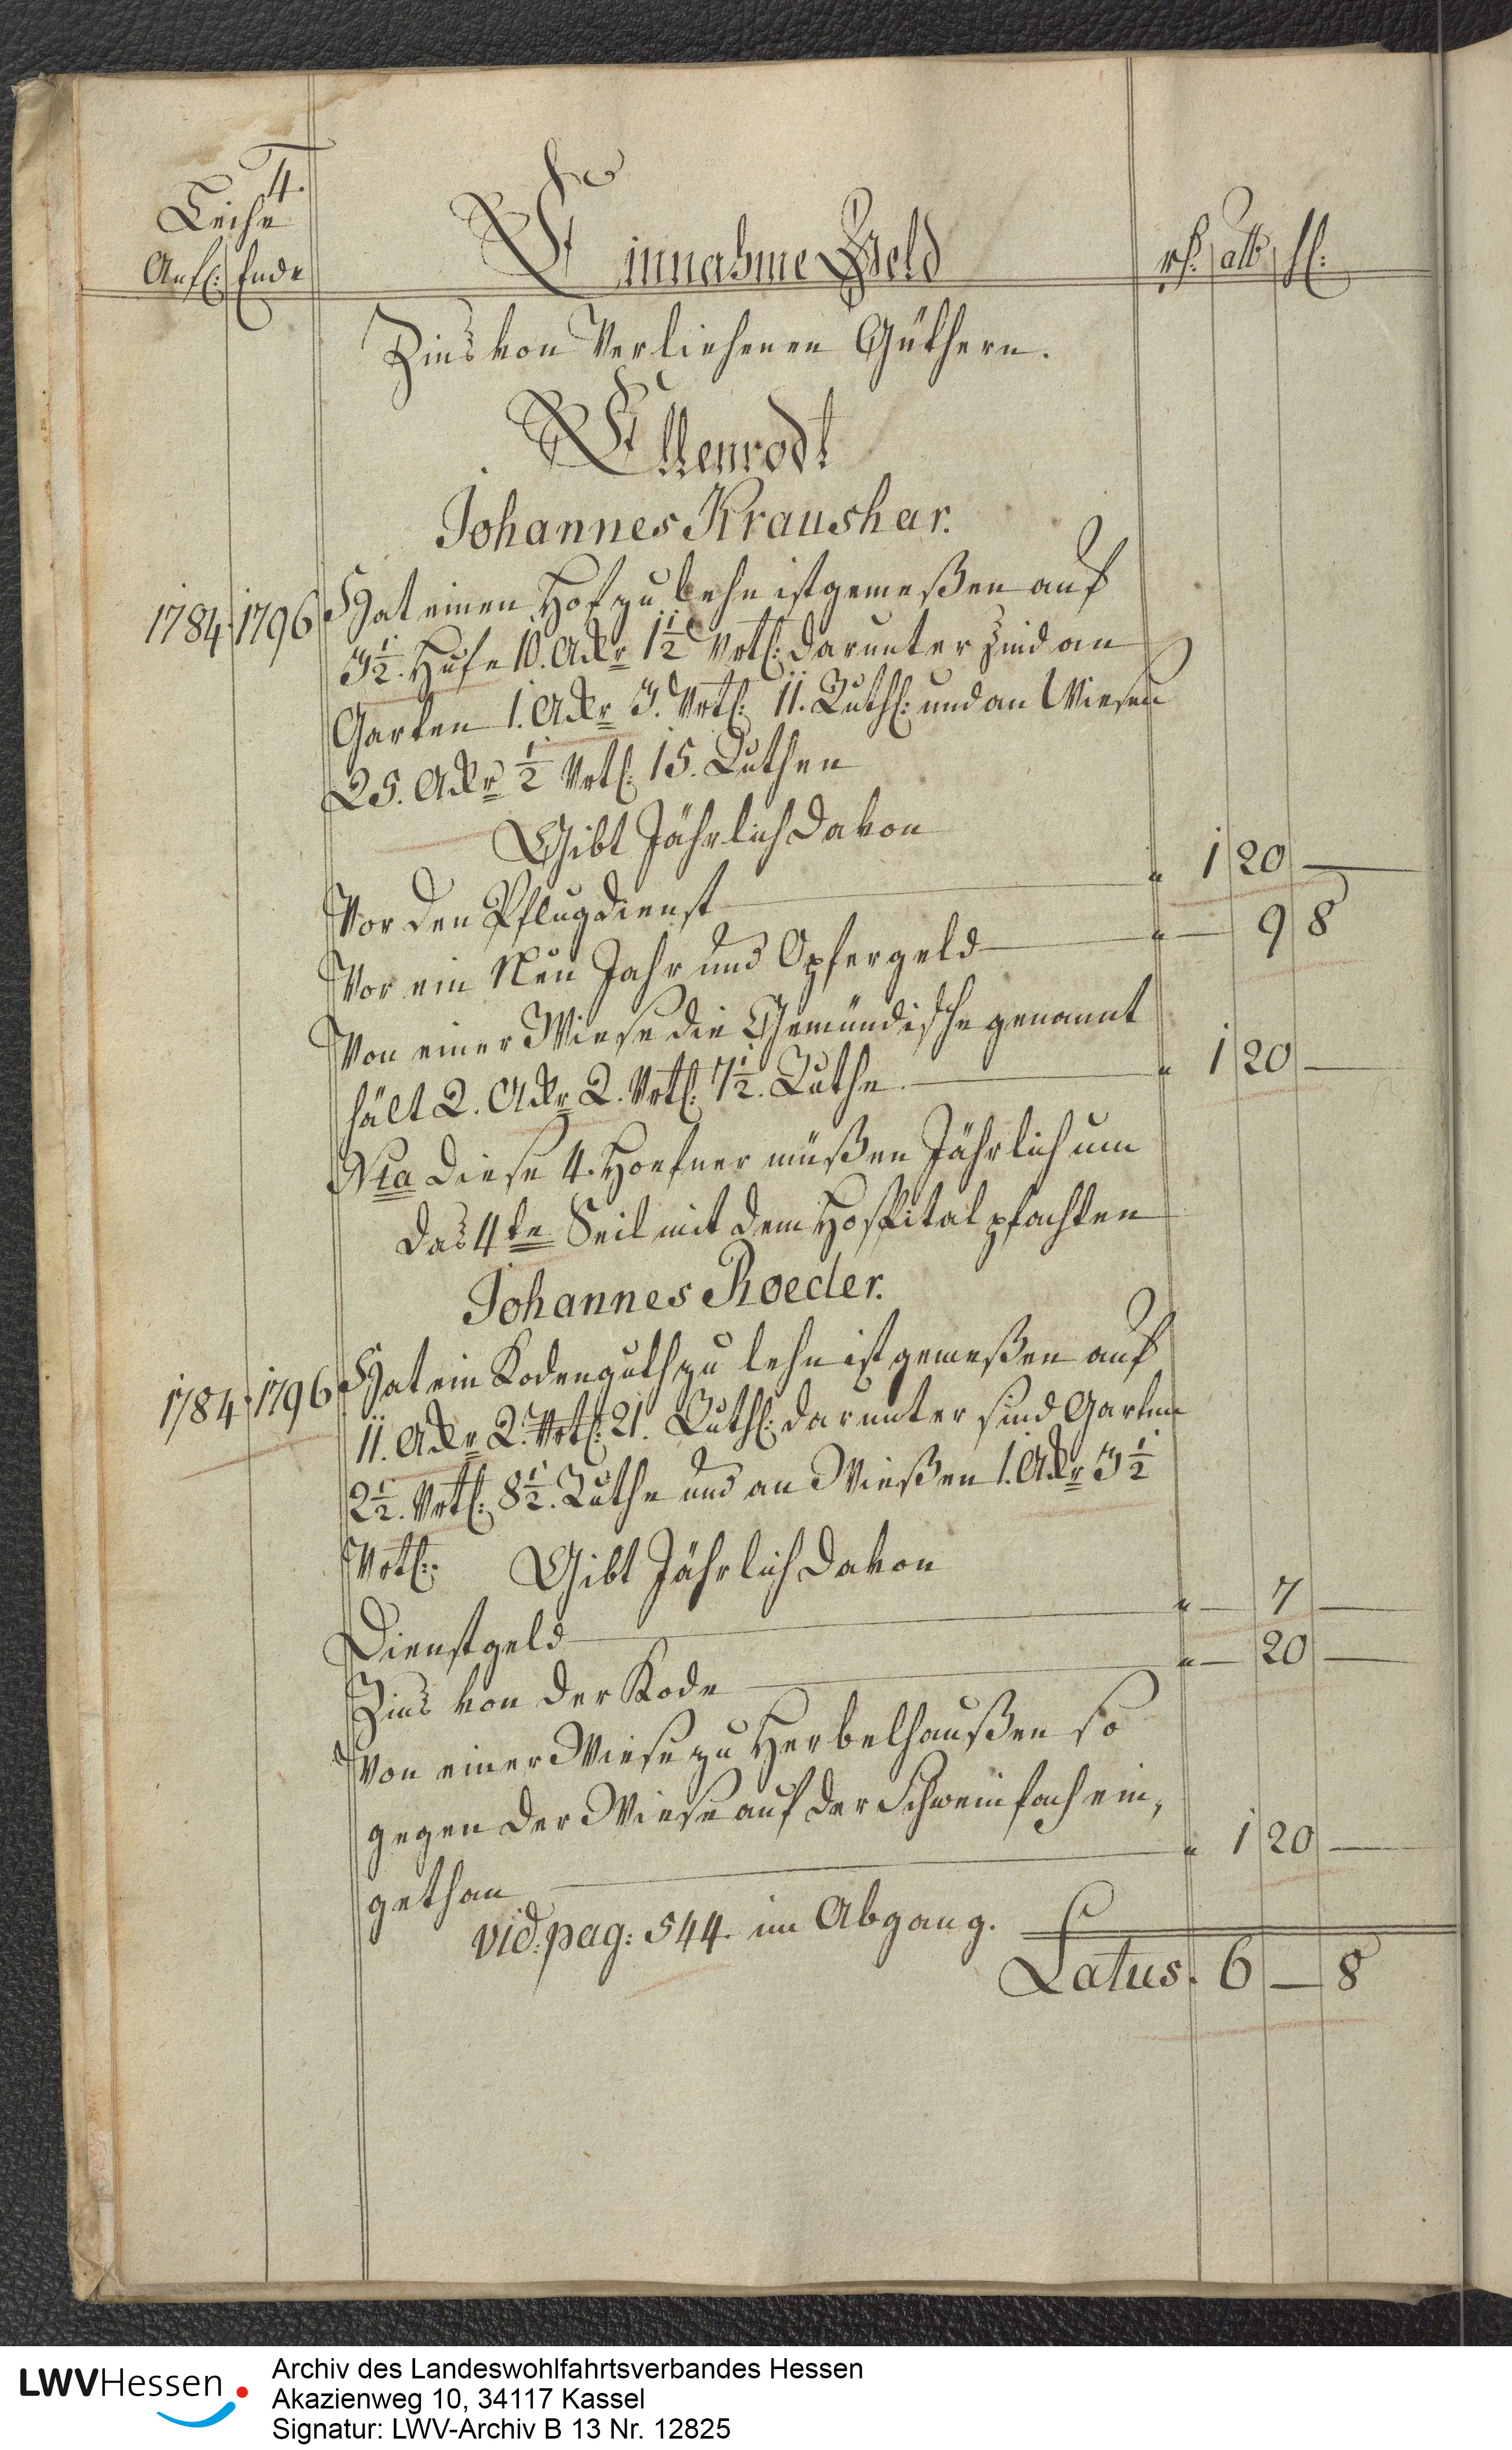 4.
Leihe
Anf: Ende
Einnahme Geld
rh: alb hl:
Zins von Verliehenen Güthern.
Ellenrodt
Johannes Kraushar.
1784. 1796 Hat einen Hof zu Lehn ist gemeßen auf
3 1/2. Hufe 10. Ackr 1 1/2 Vrtl: darunter sind an
Garten 1. Ackr 3. Vrtl: 11. Ruth: und an Wiesen
25. Ackr 1/2 Vrtl: 15. Ruthen
Gibt Jährlich davon
Vor den Pflugdienst " 1 20 —
Vor ein Neu Jahr und Opfergeld " — 9 8
Von einer Wiese die Gemündische genannt
hält 2. Ackr 2. Vrtl: 7 1/2. Ruthe " 1 20 —
Nta diese 4. Hoefner müßen Jährlich um
das 4te Seil mit dem Hospital pfachten
Johannes Roeder.
1784. 1796 Hat ein Kodenguth zu lehn ist gemeßen auf
11. Ackr 2. Vrtl: 21. Ruth: darunter sind Garten
2 1/2. Vrtl: 8 1/2. Ruthe und an Wießen 1. Ackr 3 1/2
Vrtl: Gibt Jährlich davon
Dienstgeld " — 7 —
Zins von der Kode " — 20 —
Von einer Wiese zu Herbelhaußen so
gegen der Wiese auf der Schweinfach ein,
gethan " 1 20 —
vid: pag: 544. im Abgang.
Latus. 6 — 8
LWVHessen
Archiv des Landeswohlfahrtsverbandes Hessen
Akazienweg 10, 34117 Kassel
Signatur: LWV-Archiv B 13 Nr. 12825